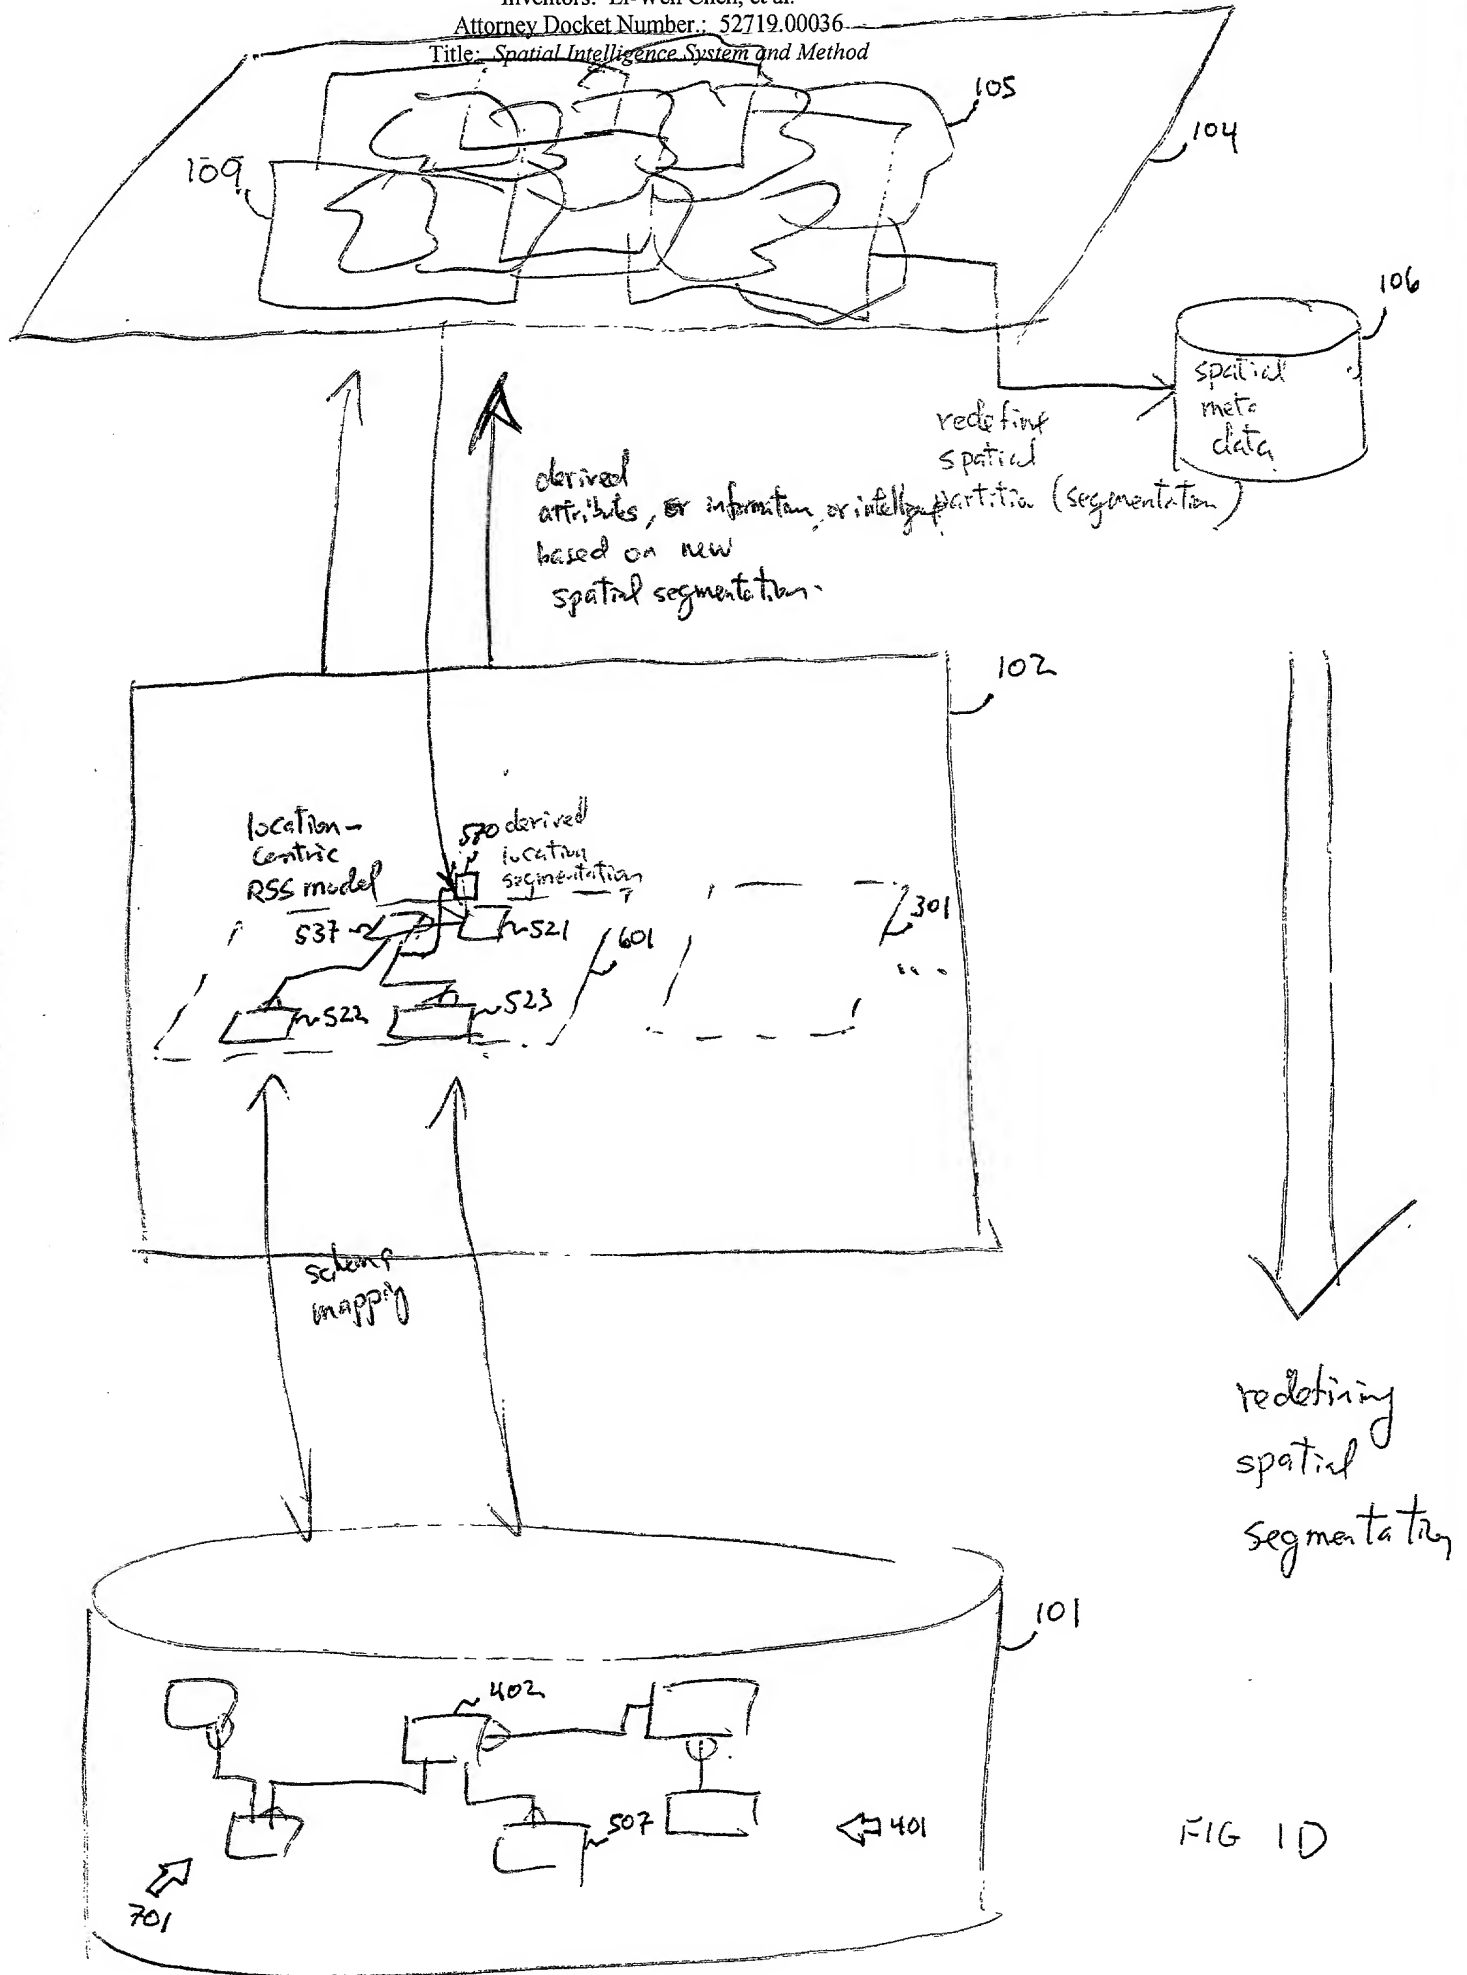 Inventors: Li-Wen Chen, et al.
Attorney Docket Number.: 52719.00036
Title: Spatial Intelligence System and Method
105
104
109
106
spatial
meta
data
redefine
spatial
partition (segmentation)
derived
attributes, or information, or
based on new
spatial segmentation.
102
location-
centric
RSS model
570 derived
location
segmentation
537
521
301
601
....
522
523
schema
mapping
redefining
spatial
segmentation
101
402
507
401
701
FIG 1D